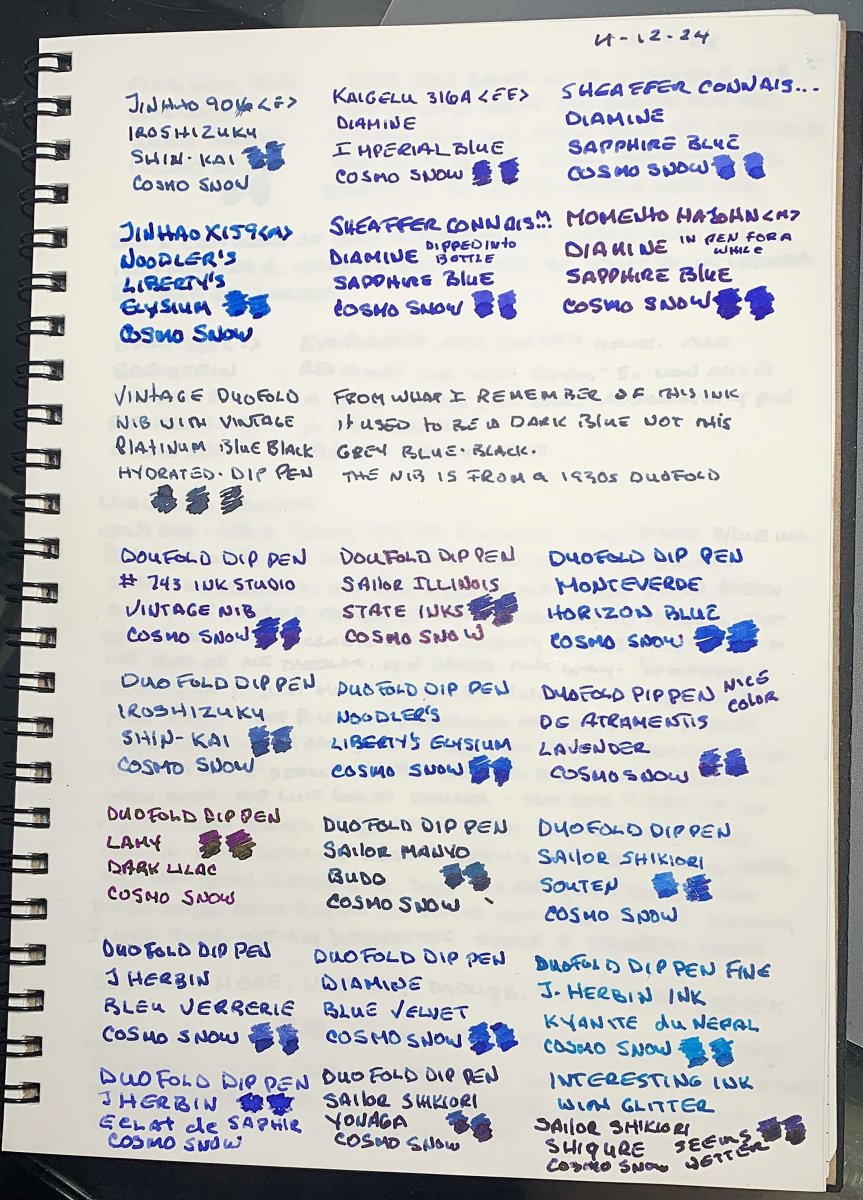 4-12-24
JINHAO 9016 <F>
IROSHIZUKU
SHIN-KAI
COSMO SNOW
KAIGELU 316A <EF>
DIAMINE
IMPERIAL BLUE
COSMO SNOW
SHEAFFER CONNAIS...
DIAMINE
SAPPHIRE BLUE
COSMO SNOW
JINHAO X159 <M>
NOODLER'S
LIBERTY'S
ELYSIUM
COSMO SNOW
SHEAFFER CONNAIS...
DIAMINE DIPPED INTO BOTTLE
SAPPHIRE BLUE
COSMO SNOW
MOMENTO <M>
DIAMINE IN PEN FOR A WHILE
SAPPHIRE BLUE
COSMO SNOW
VINTAGE DUOFOLD
NIB WITH VINTAGE
PLATINUM BLUE BLACK
HYDRATED. DIP PEN
FROM WHAT I REMEMBER OF THIS INK
IT USED TO BE A DARK BLUE NOT THIS
GREY BLUE-BLACK.
THE NIB IS FROM A 1930s DUOFOLD
DOUFOLD DIP PEN
# 743 INK STUDIO
VINTAGE NIB
COSMO SNOW
DOUFOLD DIP PEN
SAILOR ILLINOIS
STATE INKS
COSMO SNOW
DUOFOLD DIP PEN
MONTEVERDE
HORIZON BLUE
COSMO SNOW
DUOFOLD DIP PEN
IROSHIZUKU
SHIN-KAI
COSMO SNOW
DUOFOLD DIP PEN
NOODLER'S
LIBERTY'S ELYSIUM
COSMO SNOW
DUOFOLD DIP PEN NICE COLOR
DE ATRAMENTIS
LAVENDER
COSMO SNOW
DUOFOLD DIP PEN
LAMY
DARK LILAC
COSMO SNOW
DUOFOLD DIP PEN
SAILOR MANYO
BUDO
COSMO SNOW
DUOFOLD DIP PEN
SAILOR SHIKIORI
SOUTEN
COSMO SNOW
DUOFOLD DIP PEN
J HERBIN
BLEU VERRERIE
COSMO SNOW
DUOFOLD DIP PEN
DIAMINE
BLUE VELVET
COSMO SNOW
DUOFOLD DIP PEN FINE
J. HERBIN INK
KYANITE du NEPAL
COSMO SNOW
INTERESTING INK
WITH GLITTER
DUOFOLD DIP PEN
J HERBIN
ECLAT de SAPHIR
COSMO SNOW
DUOFOLD DIP PEN
SAILOR SHIKIORI
YONAGA
COSMO SNOW
SAILOR SHIKIORI
SHIGURE SEEMS
COSMO SNOW WETTER